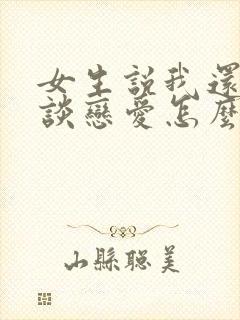 女生説我還
談戀愛怎麼
山縣聡美